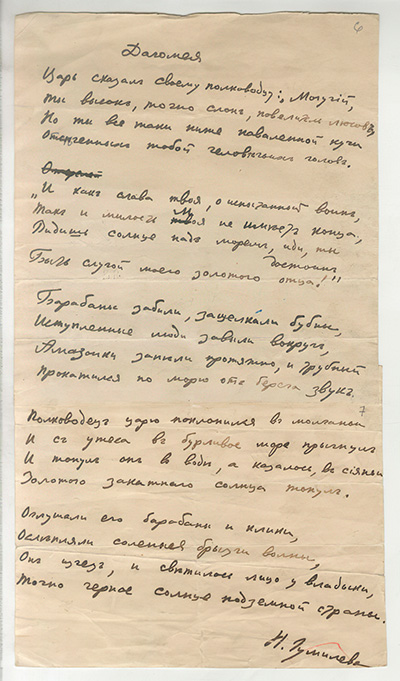 6
Дагомея
Царь сказалъ своему полководцу: „Могучій,
Ты высокъ, точно слонъ, повелитель лѣсовъ,
Но ты все таки ниже наваленной кучи
Отсѣченныхъ тобой человѣчьихъ головъ.
И какъ слава твоя, о испытанный воинъ,
Такъ и милость моя не имѣетъ конца,
Видишь солнце надъ моремъ, иди, ты
достоинъ
Быть слугой моего золотого отца!"
Барабаны забили, защелкали бубны,
Изступленные люди завыли вокругъ,
Амазонки запѣли протяжно, и трубный
Прокатился по морю отъ берега звукъ.
7
Полководецъ царю поклонился въ молчаньи
И съ утеса въ бурливое море прыгнулъ
И тонулъ онъ въ водѣ, а казалось, въ сіяньи
Золотого закатнаго солнца тонулъ.
Оглушали его барабаны и клики,
Ослѣпляли соленыя брызги волны,
Онъ изчезъ, и свѣтилось лицо у владыки,
Точно черное солнце подземной страны.
Н. Гумилевъ